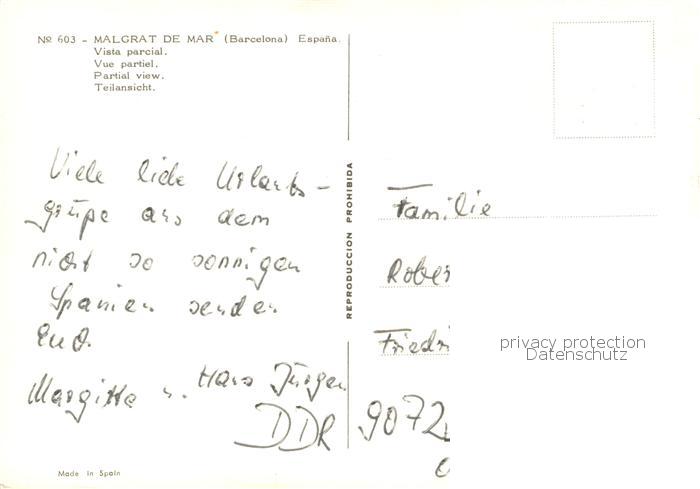 Nº 603 - MALGRAT DE MAR (Barcelona) España.
Vista parcial.
Vue partiel.
Partial view.
Teilansicht.
Viele liebe Urlaubs-
grüße aus dem
nicht so sonnigen
Spanien senden
Euch
Margitta u. Hans Jürgen
Made in Spain
REPRODUCCION PROHIBIDA
Familie
Rober
Friedri
DDR 9072
privacy protection
Datenschutz